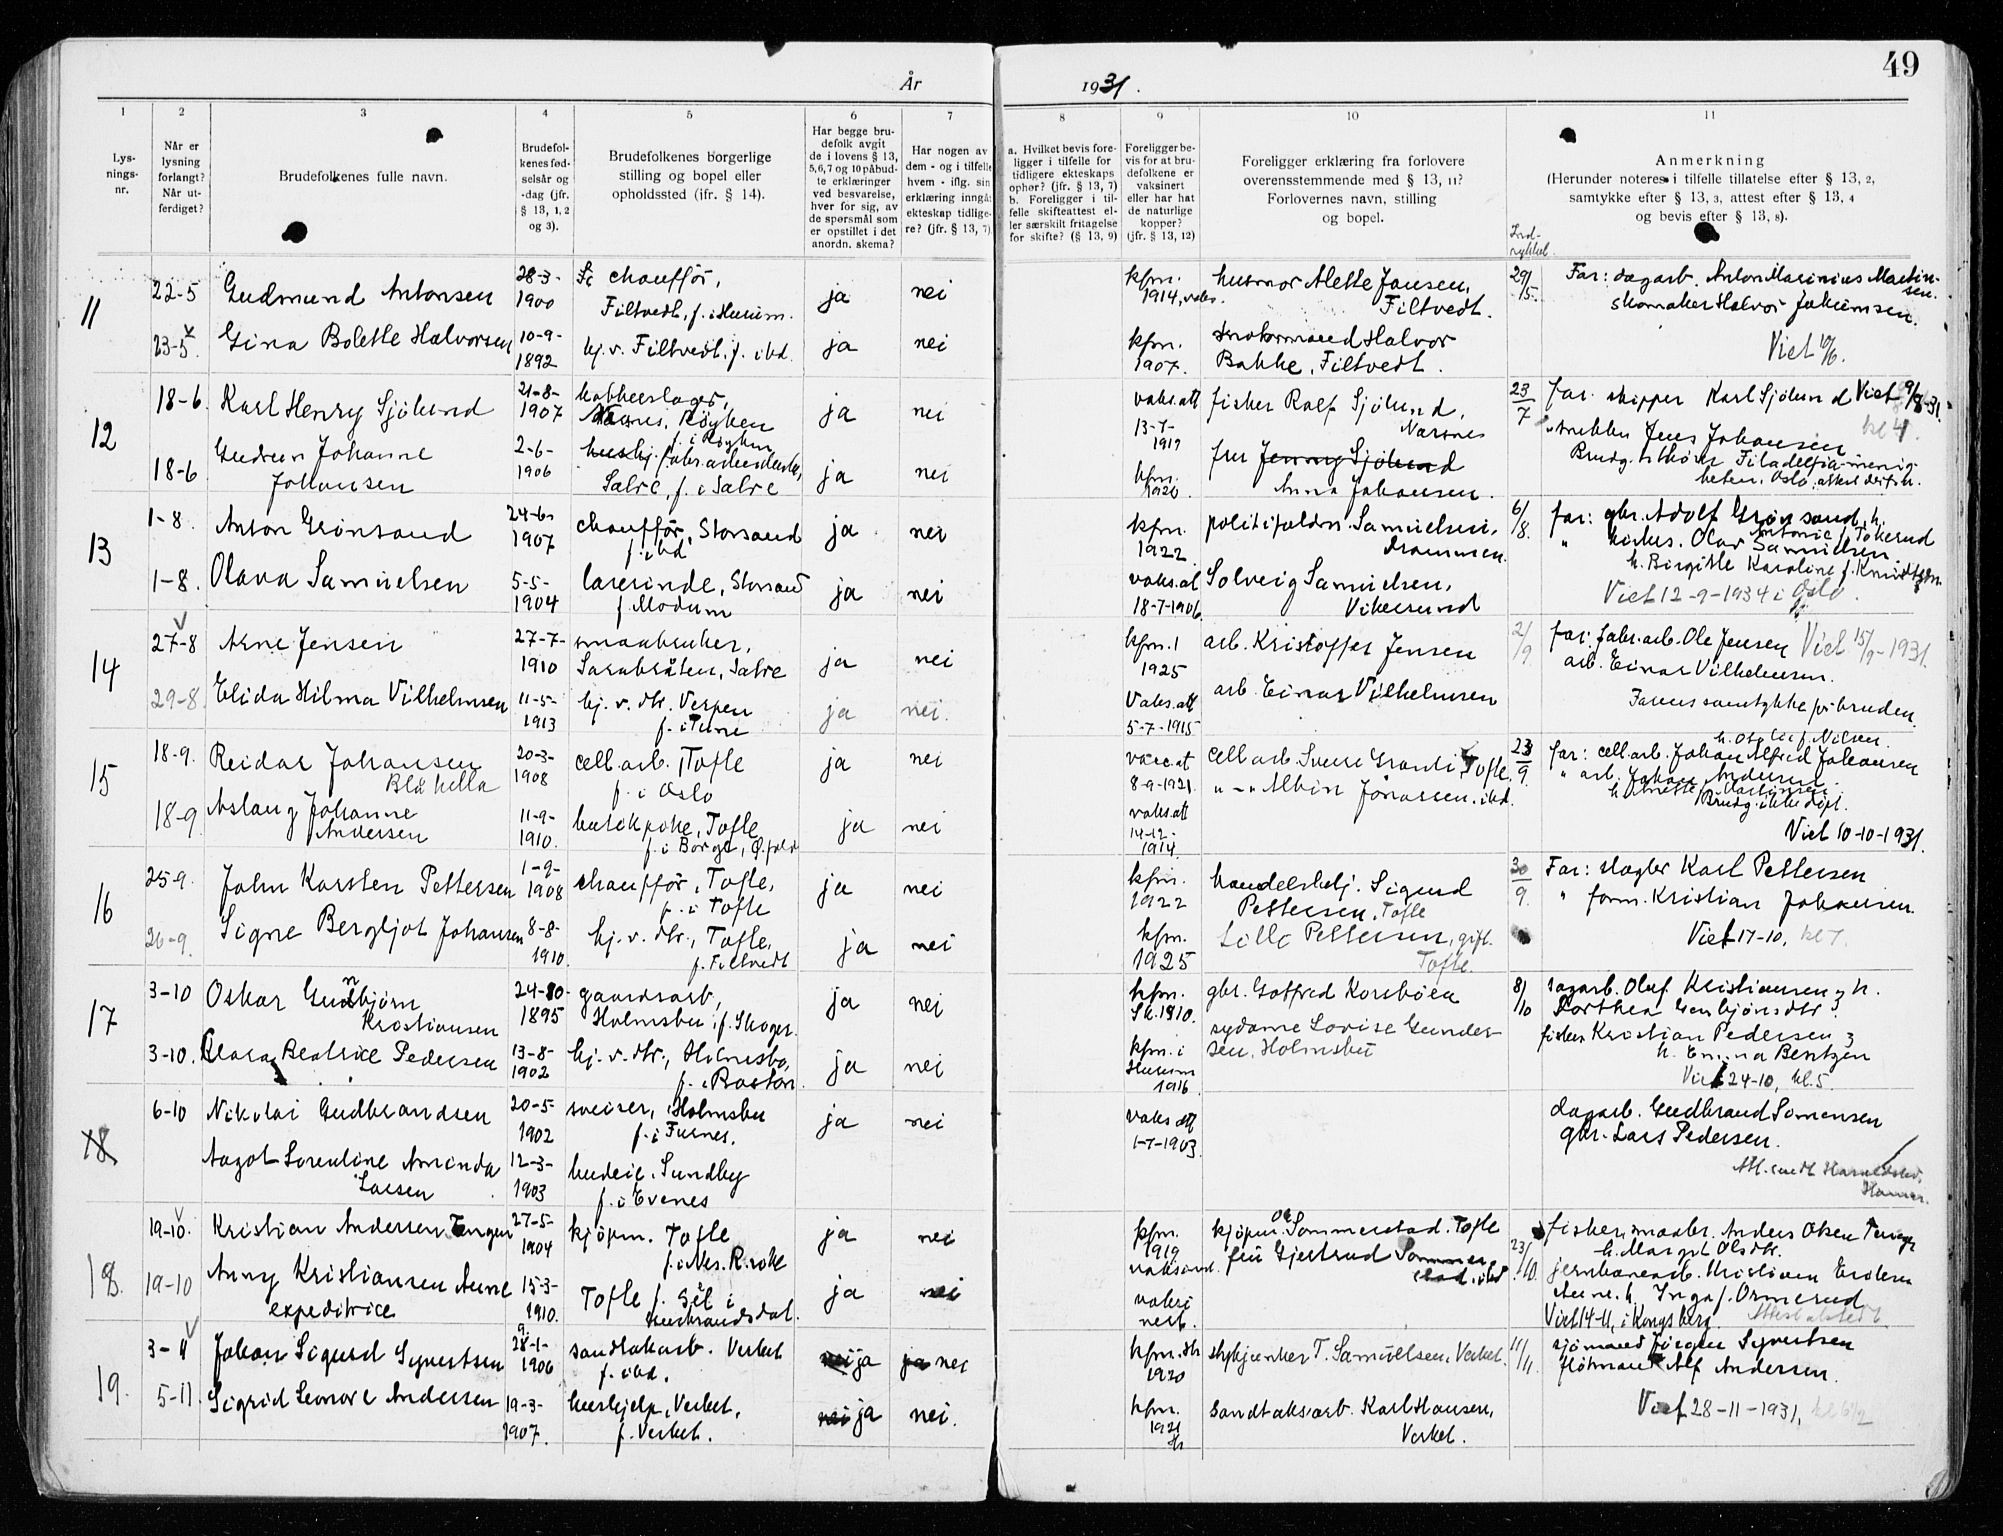 49
År 1931.
1 2 3 4 5 6 7 8 9 10 11
Lysningsnr.
Når er lysning forlangt? Når utferdiget?
Brudefolkenes fulle navn.
Brudefolkenes fødselsår og -dag (jfr. § 13, 1, 2 og 3).
Brudefolkenes borgerlige stilling og bopel eller opholdssted (ifr. § 14).
Har begge brudefolk avgit de i lovens § 13, 5,6,7 og 10 påbudte erklæringer ved besvarelse, hver for sig, av de spørsmål som er opstillet i det anordn. skema?
Har nogen av dem - og i tilfelle hvem - iflg. sin erklæring inngåt ekteskap tidligere? (jfr. § 13, 7)
a. Hvilket bevis foreligger i tilfelle for tidligere ekteskaps ophør? (jfr. § 13, 7)
b. Foreligger i tilfelle skifteattest eller særskilt fritagelse for skifte? (§ 13, 9)
Foreligger bevis for at brudefolkene er vaksinert eller har hat de naturlige kopper? (jfr. § 13, 12)
Foreligger erklæring fra forlovere overensstemmende med § 13, 11? Forlovernes navn, stilling og bopel.
Anmerkning
(Herunder noteres i tilfelle tillatelse efter § 13, 2, samtykke efter § 13, 3, attest efter § 13, 4 og bevis efter § 13, 8).
11
22-5 Gudmund Antonsen 28-3-1900 chauffør, Filtvedt, f. i Hurum. ja nei kfm. 1914, vaks. husmor Alette Jansen, Filtvedt. 29/5. Far: dagarb. Anton Marinius Martinsen.
skomaker Halvor Jokumsen.
23-5 Gina Bolette Halvorsen 10-9-1892 hj. v. Filtvedt, f. ibd. ja nei kfm. 1907. Halvor Bakke, Filtvedt. Viet 10/6.
12
18-6 Karl Henry Sjölund 21-8-1907 kobberslager, Nærsnes, Røyken f. i Røyken ja nei vaks. att 13-7-1917 fisker Rolf Sjölund, Nærsnes 23/7 far. skipper Karl Sjölund Viet 9/8-31. kl 4.
18-6 Gudrun Johanne Johansen 2-6-1906 fabr.arbeiderske, Sætre, f. i Sætre ja nei kfm. 1920 fru Jenny Sjölund Anna Johansen. snekker Jens Johansen
Brudg. tilhører Filadelfia-menigheten, Oslo
13
1-8. Anton Grönsand 24-6-1907 chauffør, Storsand f. ibd ja nei kfm. 1922 politifuldm. Samuelsen, Drammen. 6/8. far: gbr. Adolf Grönsand, h. Antonie Tokerud
1-8. Olava Samuelsen 5-5-1904 lærerinde, Storsand f. Modum ja nei vaks.at 18-7-1906 Solveig Samuelsen, Vikersund " kirkes. Olav Samuelsen
h. Birgitte Karoline f. Knudtzen
Viet 12-9-1934 i Oslo.
14
27-8 Arne Jensen 27-7-1910 småbruker, Sarabråten, Sætre ja nei kfm. i 1925 arb. Kristoffer Jensen 2/9. far: fabr.arb. Ole Jensen Viet 15/9-1931.
29-8 Elida Hilma Vilhelmsen 11-5-1913 hj. v. dtr. Verpen f. i Tune ja nei. Vaks.att 5-7-1915 arb. Einar Vilhelmsen arb. Einar Vilhelmsen.
Farens samtykke for bruden.
15
18-9. Reidar Johansen Blåhella 20-3-1908 cell.arb. Tofte f. i Oslo ja nei vacc.at 8-9-1921 cell.arb. Sverre Granli, Tofte. 23/9. far: cell.arb. Johan Alfred Johansen
18-9 Aslaug Johanne Andersen 11-9-1910. Tofte f. i Borge, Ø.fold ja nei vaks.att 14-12-1914 " -" Albin Jönassen. ibd. " arb. Johan Andersen
h. Anette Martinsen
Brudg. ikke døpt.
Viet 10-10-1931.
16
25-9. John Karsten Pettersen 1-9-1908 chauffør, Tofte, f. i Tofte ja nei kfm. 1922 handelsbetj. Sigurd Pettersen, Tofte 30/9. Far: slagter Karl Pettersen
26-9. Signe Bergljot Johansen 8-8-1910. hj. v. dtr., Tofte, f. Filtvedt ja nei kfm. 1925 Lilly Pettersen, gift. Tofte. " form. Kristian Johansen.
Viet 17-10, kl 7.
17
3-10 Oskar Gudbjørn Kristiansen 24-10-1895 gaardsarb., Holmsbu, f. Skoger. ja nei kfm. Sk. 1910. gbr. Gotfred Korsböen 8/10 sagarb. Olaf Kristiansen og h. Dorthea Gunbjönsdtr
3-10. Clara Beatrice Pedersen 13-8-1902 hj. v. dtr., Holmsbo, f. i Boston ja nei kfm. i Hurum 1916 sydame Lovise Gundersen, Holmsbu fisker Kristian Pedersen og h. Emma Bentzen
Viet 24-10, kl. 5.
18
6-10 Nikolai Gudbrandsen 20-5-1902 sveiser, Holmsbu f. i Furnes. ja nei vaks att 1-7-1903 dagarb. Gudbrand Simensen
Aagot Lorentine Aminda Larsen 12-3-1903 budeie, Sundby f. i Evenes gbr. Lars Pedersen.
18.
19-10. Kristian Andersen Tangen 27-5-1904 kjöpm. Tofte f. i Nes, R.rike ja nei kfm. 1919 kjöpm. Ole Sommerstad. Tofte 23/10. fisker, smaabr. Anders Olsen Tangen
h. Margit Olsdtr.
19-10 Anny Kristiansen Aune expeditrice 15-3-1910. Tofte f. Sel i Gudbrandsdal. ja nei fru Gjertrud Sommerstad, ibd jernbanearb. Kristian Eriksen Aune. h. Inga f. Ormerud
Viet 14-11, i Kongsberg.
19.
3-11 Johan Sigurd Syvertsen 28-1-1906 sandtakarb. Verket f. ibd. nei ja ja nei kfm. 1920 T. Samuelsen, Verket. 11/11. sjömand Jörgen Syvertsen
5-11 Sigrid Leonore Andersen 19-3-1907. hushjelp, Verket, f. Verket. nei ja nei. kfm. 1921 Sandtaksarb. Karl Hansen, Verket. Alf Andersen.
Viet 28-11-1931, kl 6½